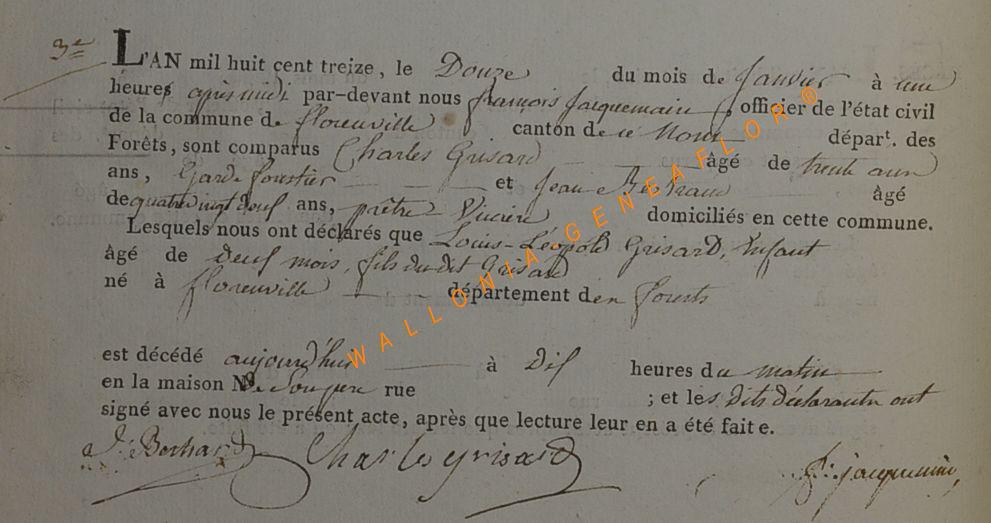 3e
L'AN mil huit cent treize, le Douze du mois de Janvier à une
heures après midi par-devant nous françois Jacquemain, officier de l'état civil
de la commune de florenville canton de ce Nom départ. des
Forêts, sont comparus Charles Grisard âgé de trente
ans, Garde forestier et Jean âgé
de quatre vingt deux ans, prêtre domiciliés en cette commune.
Lesquels nous ont déclarés que Louis-Léopold Grisard, Enfant
âgé de deux mois, fils du dit Grisard
né à florenville département des forests
est décédé aujourd'hui à Dix heures du matin
en la maison rue ; et les dits déclarants ont
signé avec nous le présent acte, après que lecture leur en a été faite.
Charles grisard
WALLONIA GENEAFLOR ®